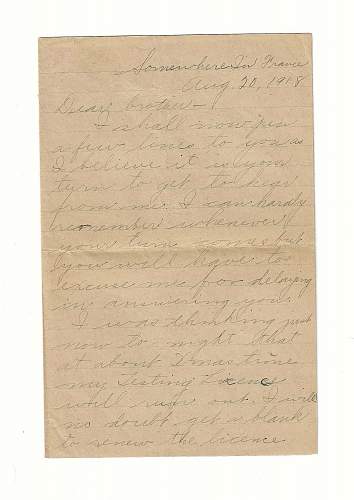 Somewhere In France
Aug. 20, 1918
Dear brother -
I shall now pen
a few lines to you as
I believe it is your
turn to get to hear
from me. I can hardly
remember whenever
your turn comes but
you will have to
excuse me for delaying
in answering your
I was thinking just
now to-night that
at about Xmas time
my Testing Licence
will run out. I will
no doubt get a blank
to renew the licence